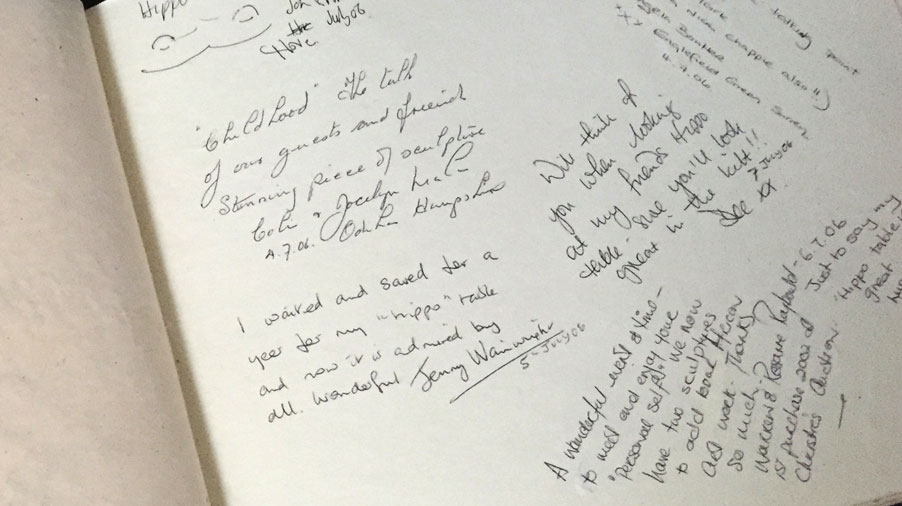 Hippo
July 06
Hove
"Childhood" The talk
of our guests and friends
Stunning piece of sculpture
Jocelyn
4.7.06.
I waited and saved for a
year for my "hippo" table
and now it is admired by
all. Wonderful Jenny Wainwright
5th July 06
talking point
nice chappie also!!)
xx
Englefield Green Surrey
4.7.06
Will think of
you when looking
at my friends Hippo
table - sure you'll look
great in the kilt!!
7 July 06
xx.
A wonderful event & time -
to meet and enjoy your
"personal self". We now
have two sculptures
to add to our African
art work. Thanks
so much.
6.7.06
1st purchase 2002 at
Christies Auction.
Just to say my
"Hippo table"
great